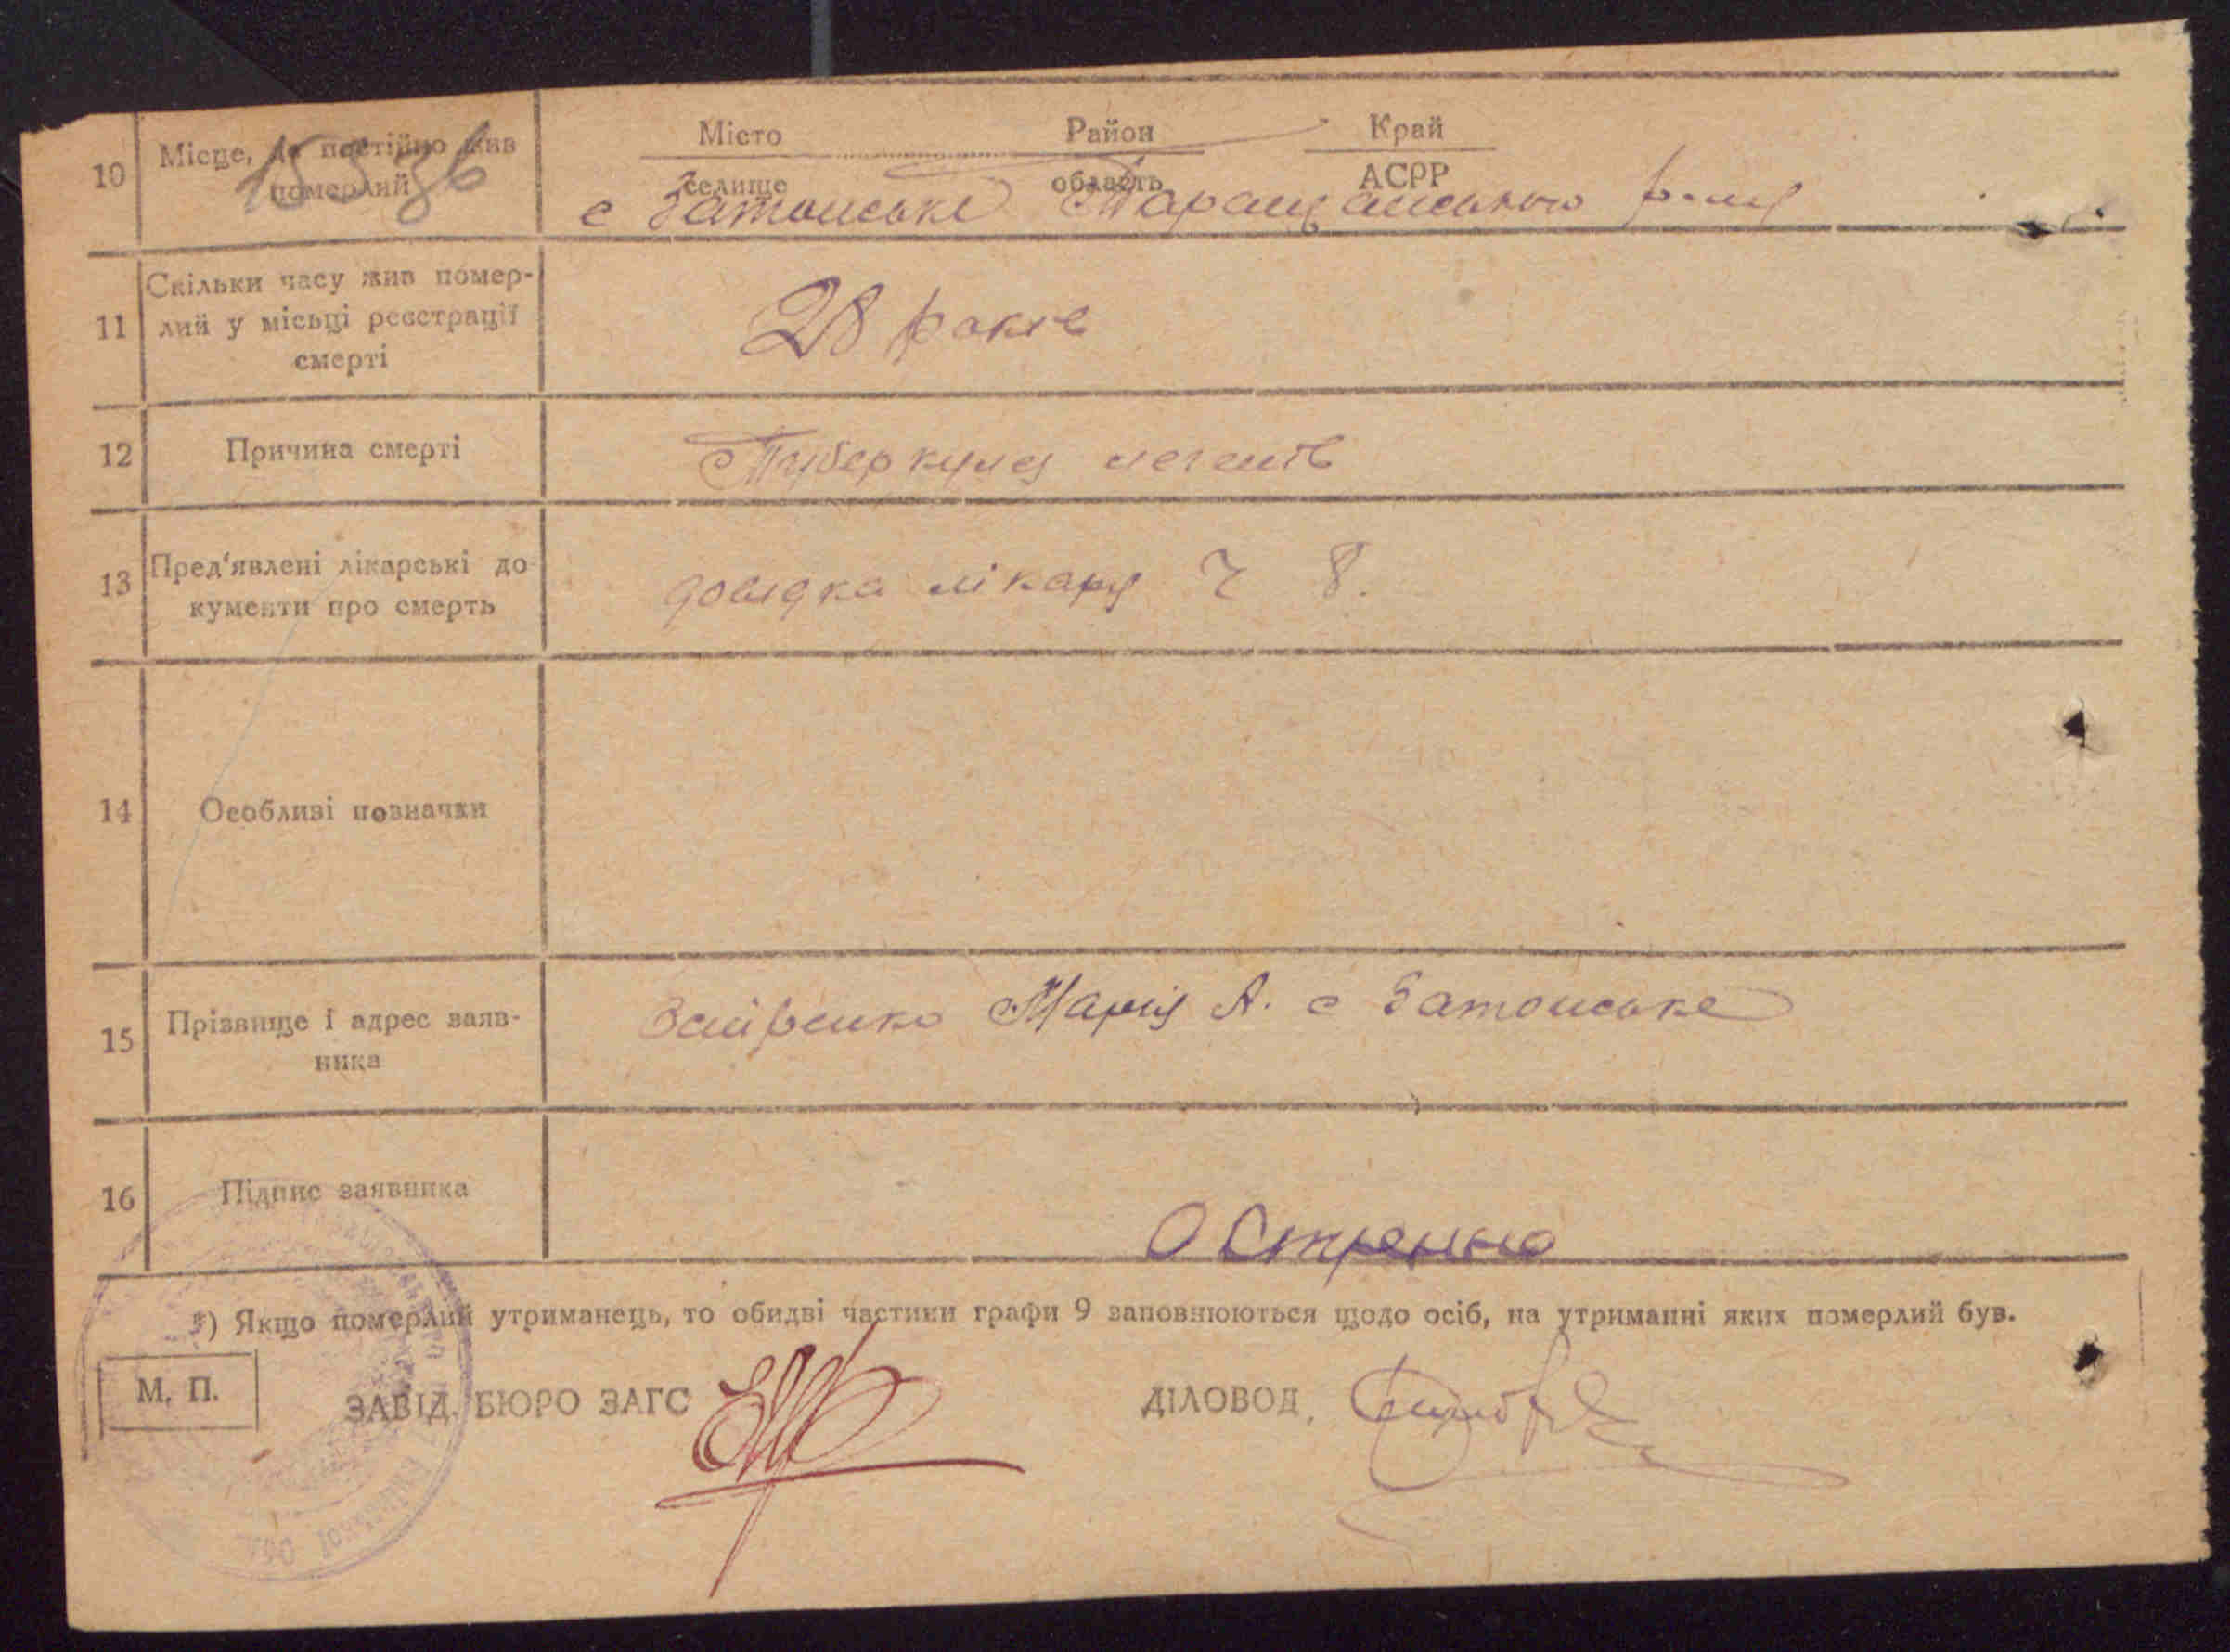 10 Місце, де постійно жив померлий
15 5 36
Місто селище Район область Край АСРР
с Затонське Таращанського р-ну
11 Скільки часу жив помер-
лий у місьці реєстрації
смерті
28 років
12 Причина смерті
Туберкульоз легенів
13 Пред'явлені лікарські до
кументи про смерть
довідка лікаря Ч 8.
14 Особливі позначки
15 Прізвище і адрес заяв-
ника
Марія А. с Затонське
16 Підпис заявника
*) Якщо померлий утриманець, то обидві частини графи 9 заповнюються щодо осіб, на утриманні яких померлий був.
М. П.
ЗАВІД. БЮРО ЗАГС
ДІЛОВОД